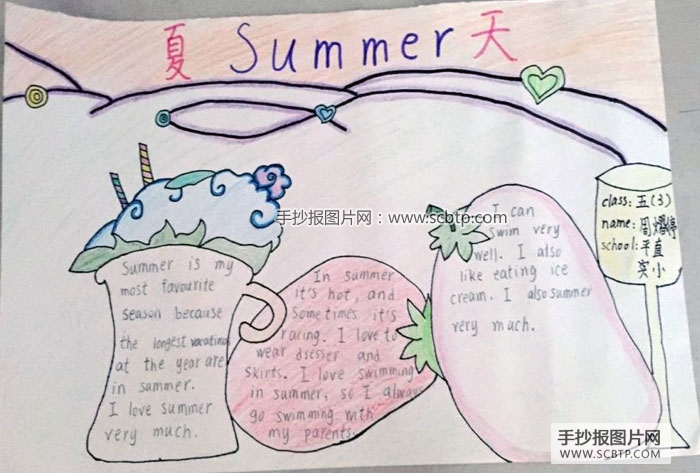 夏 Summer 天
class: 五(3)
name: 周 婷
school: 平直
实小
手抄报图片网：www.scbtp.com
Summer is my
most favourite
season because
the longest vacations
at the year are
in summer.
I love summer
very much.
In summer
it's hot, and
Sometimes it's
raring. I love to
wear dresser and
skirts. I love swimming
in summer, so I always
go swimming with
my parents.
I can
swim very
well. I also
like eating ice
cream. I also summer
very much.
手抄报图片网
SCBTP.COM